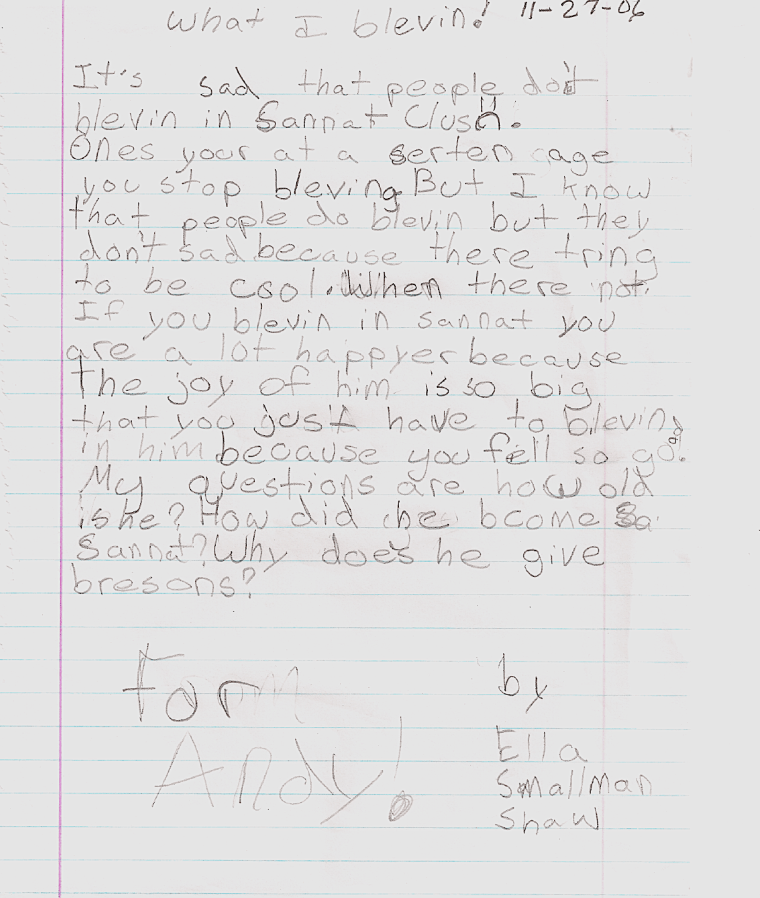 What I blevin! 11-27-06
It's sad that people don't
blevin in Sannat Clush.
Ones your at a serten age
you stop bleving. But I know
that people do blevin but they
don't sad because there tring
to be cool. When there not.
If you blevin in sannat you
are a lot happyer because
the joy of him is so big
that you just have to blevin
in him because you fell so go.
My questions are how old
is he? How did he bcome Sa
Sannat? Why does he give
bresons?
Form
Andy!
by
Ella
Smallman
Shaw